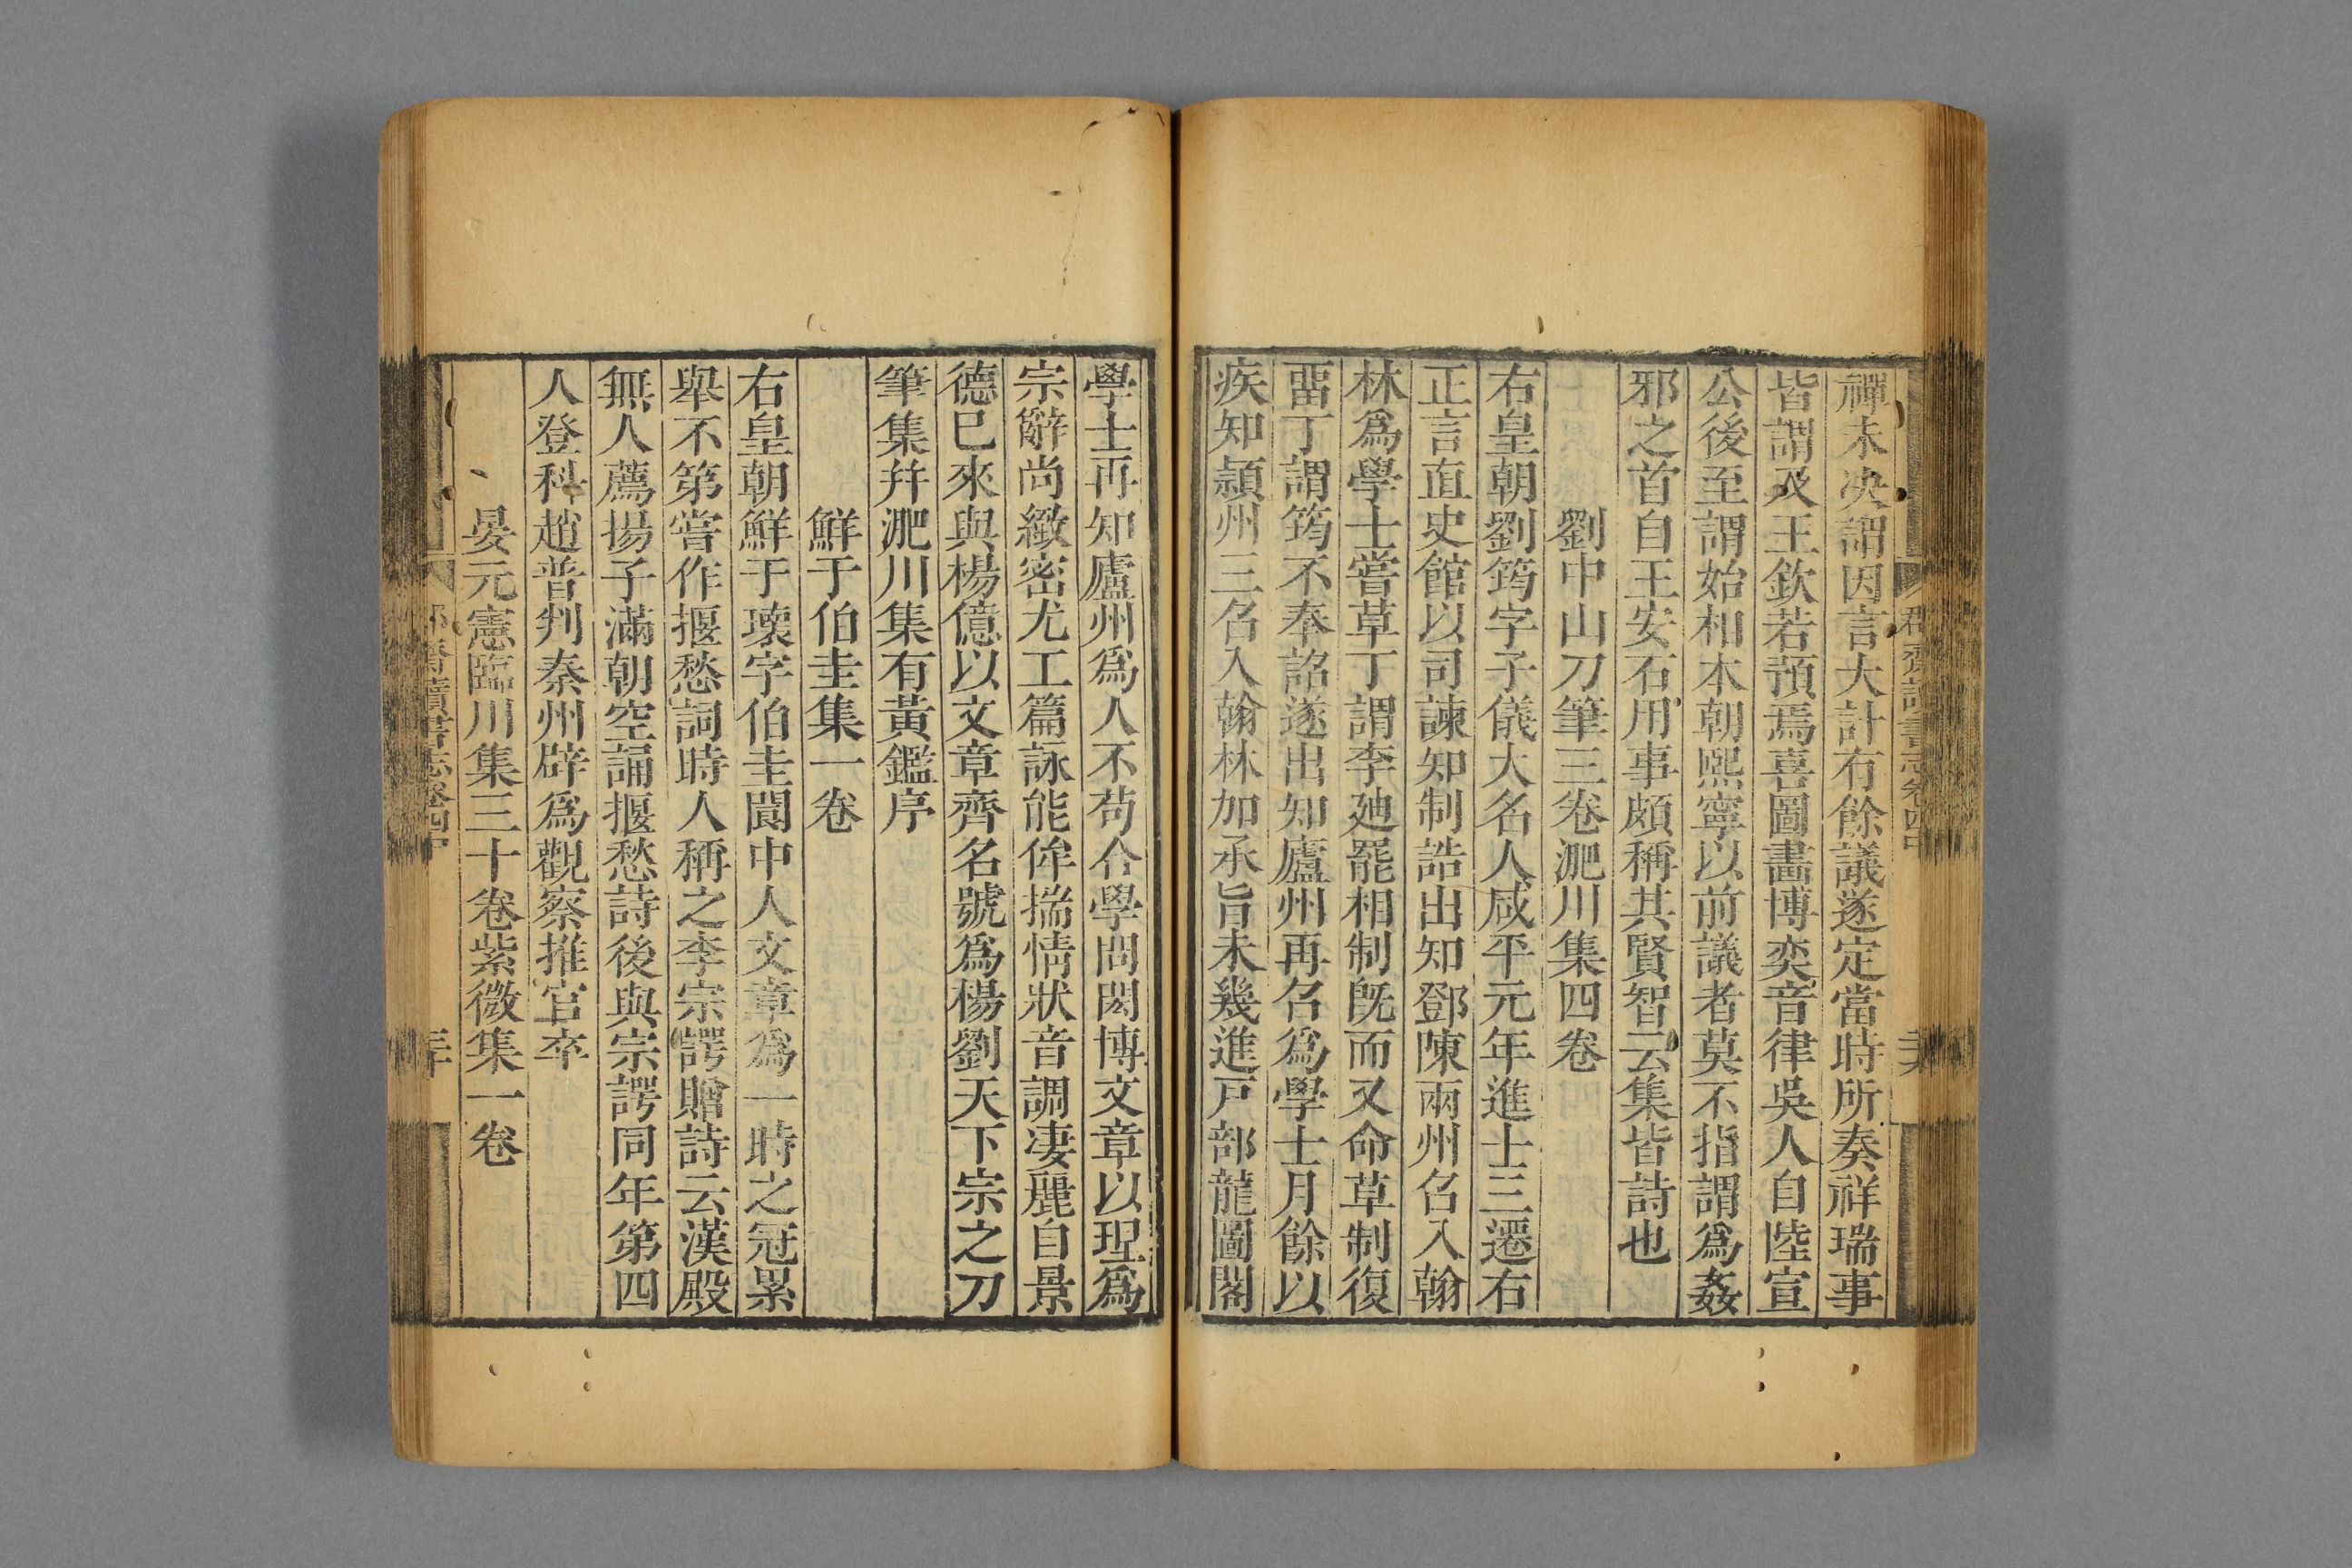 禪未決謂因言大計有餘議遂定當時所奏祥瑞事
皆謂及王欽若預焉喜圖畫博奕音律吳人自陸宣
公後至謂始相本朝熙寧以前議者莫不指謂爲姦
邪之首自王安石用事頗稱其賢智云集皆詩也
劉中山刀筆三卷淝川集四卷
右皇朝劉筠字子儀大名人咸平元年進士三遷右
正言直史館以司諫知制誥出知鄧陳兩州召入翰
林爲學士嘗草丁謂李廸罷相制旣而又命草制復
畱丁謂筠不奉詔遂出知廬州再召爲學士月餘以
疾知潁州三召入翰林加承旨未幾進戸部龍圖閣
學士再知廬州爲人不苟合學問閎博文章以理爲
宗辭尚緻密尤工篇詠能侔揣情狀音調凄麗自景
德巳來與楊億以文章齊名號爲楊劉天下宗之刀
筆集幷淝川集有黃鑑序
鮮于伯圭集一卷
右皇朝鮮于瓌字伯圭閬中人文章爲一時之冠累
舉不第嘗作揠愁詞時人稱之李宗諤贈詩云漢殿
無人薦揚子滿朝空誦揠愁詩後與宗諤同年第四
人登科趙普判秦州辟爲觀察推官卒
晏元憲臨川集三十卷紫微集一卷